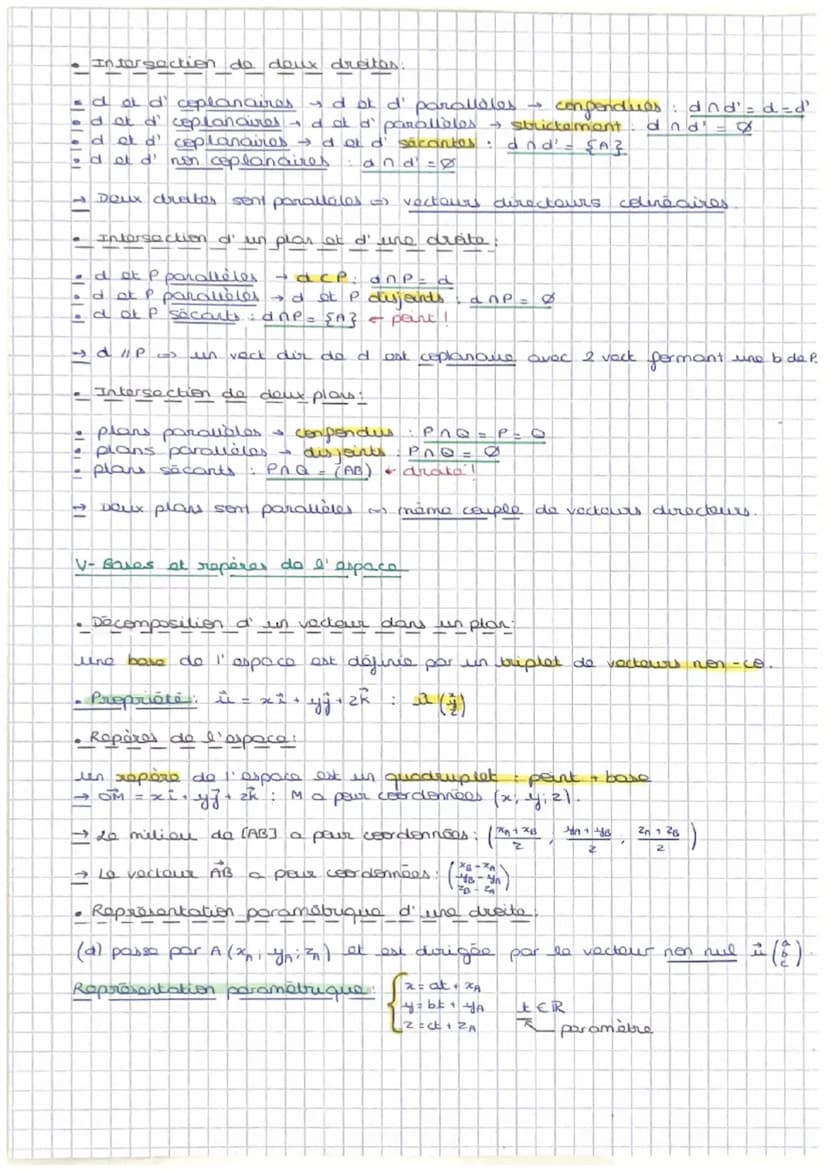 • Intersection de deux droites:
• d et d' coplanaires → d et d' parallèles → confondues : d ∩ d' = d = d'
• d et d' coplanaires → d et d' parallèles → strictement : d ∩ d' = ∅
• d et d' coplanaires → d et d' sécantes : d ∩ d' = {A}
• d et d' non coplanaires : d ∩ d' = ∅
→ Deux droites sont parallèles ⇔ vecteurs directeurs colinéaires.
• Intersection d'un plan et d'une droite:
• d et P parallèles → d ⊂ P : d ∩ P = d
• d et P parallèles → d et P disjoints : d ∩ P = ∅
• d et P sécants : d ∩ P = {A} ← point !
→ d // P ⇔ un vect dir de d est coplanaire avec 2 vect formant une b de P.
• Intersection de deux plans:
• plans parallèles → confondus : P ∩ Q = P = Q
• plans parallèles → disjoints : P ∩ Q = ∅
• plans sécants : P ∩ Q = (AB) ← droite !
→ Deux plans sont parallèles ⇔ même couple de vecteurs directeurs.
V- Bases et repères de l'espace
• Décomposition d'un vecteur dans un plan:
une base de l'espace est définie par un triplet de vecteurs non-co.
• Propriété: u⃗ = xi⃗ + yj⃗ + zk⃗ : u⃗ (x y z)
• Repères de l'espace:
un repère de l'espace est un quadruplet : point + base
→ OM⃗ = xi⃗ + yj⃗ + zk⃗ : M a pour coordonnées (x; y; z).
→ Le milieu de [AB] a pour coordonnées: ((xA + xB)/2 ; (yA + yB)/2 ; (zA + zB)/2)
→ Le vecteur AB⃗ a pour coordonnées: (xB - xA yB - yA zB - zA)
• Représentation paramétrique d'une droite:
(d) passe par A (xA; yA; zA) et est dirigée par le vecteur non nul u⃗ (a b c).
Représentation paramétrique: { x = at + xA
y = bt + yA t ∈ ℝ
z = ct + zA ↖ paramètre